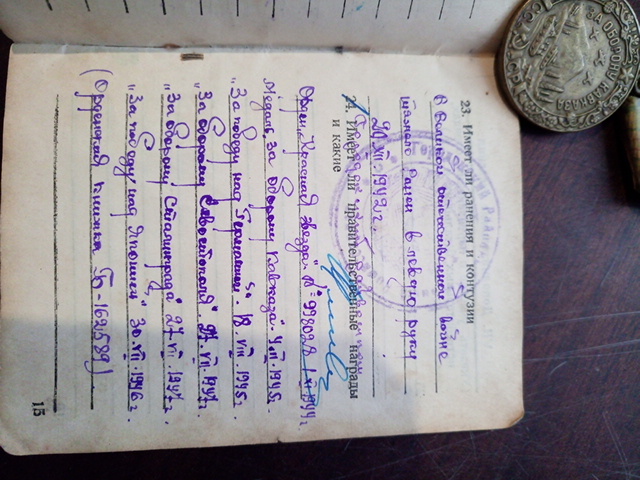 23. Имеет ли ранения и контузии
В Великой отечественной войне
тяжело ранен в левую руку
20.XII.1942 г.
24. Имеет ли правительственные награды
и какие
Орден „Красная Звезда“ № 998028 1944 г.
Медаль „За оборону Кавказа“ 1945 г.
„За победу над Германией“ 18. VIII. 1945 г.
„За оборону Севастополя“ 27. VII. 1947 г.
„За оборону Сталинграда“ 27. VII. 1947 г.
„За победу над Японией“ 30. VII. 1946 г.
(Орденская книжка Б - 162589)
15
ЗА ОБОРОНУ КАВКАЗА